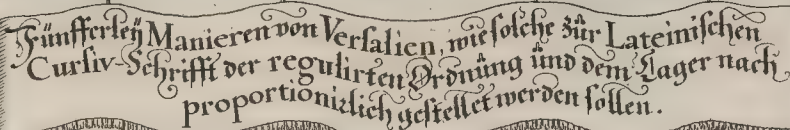 Fünfferleÿ Manieren von Versalien, wie solche zůr Lateinischen
Cursiv-Schrifft der regulirten Ordnůng ůnd dem Lager nach
proportionirlich gestellet werden sollen.